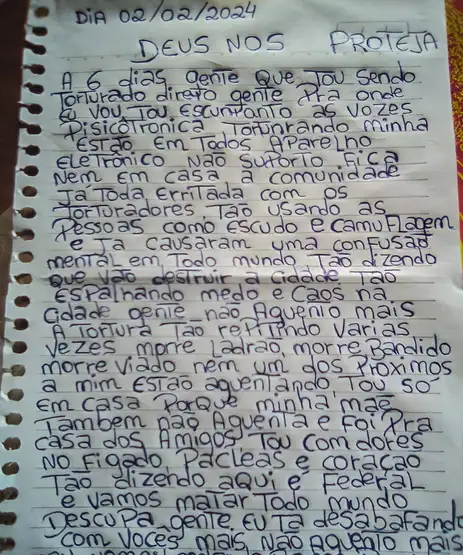 DIA 02/02/2024
DEUS NOS PROTEJA
A 6 dias gente Que Tou Sendo
Torturado direto gente Pra onde
Eu Vou Tou Escuntanto as Vozes
Pisicotronica Torturando minha
ESTão Em Todos Aparelho
eLeTrônico Não Suporto Fica
Nem Em Casa a comunidade
Ta Toda Erritada com os
Torturadores Tão usando as
Pessoas como Escudo e camuFlagem
e Ta Causaram uma confusao
mental em Todo mundo Tao dizendo
que vao destruir a Cidade Tao
Espalhando medo e Caos na
Cidade gente não Aguento mais
A Tortura Tao repitindo Varias
Vezes morre Ladrao, morre Bandido
morre Viado nem um dos Próximos
a mim ESTão aguentando Tou Só
Em Casa Porque minha mãe
Tambem não Aguenta e Foi Pra
Casa dos Amigos Tou Com dores
NO Figado, Pacleas e coração
Tão dizendo aqui e Federal
e Vamos matar Todo mundo
Descupa gente Eu Ta desabafando
com voces mais Não Aguento mais